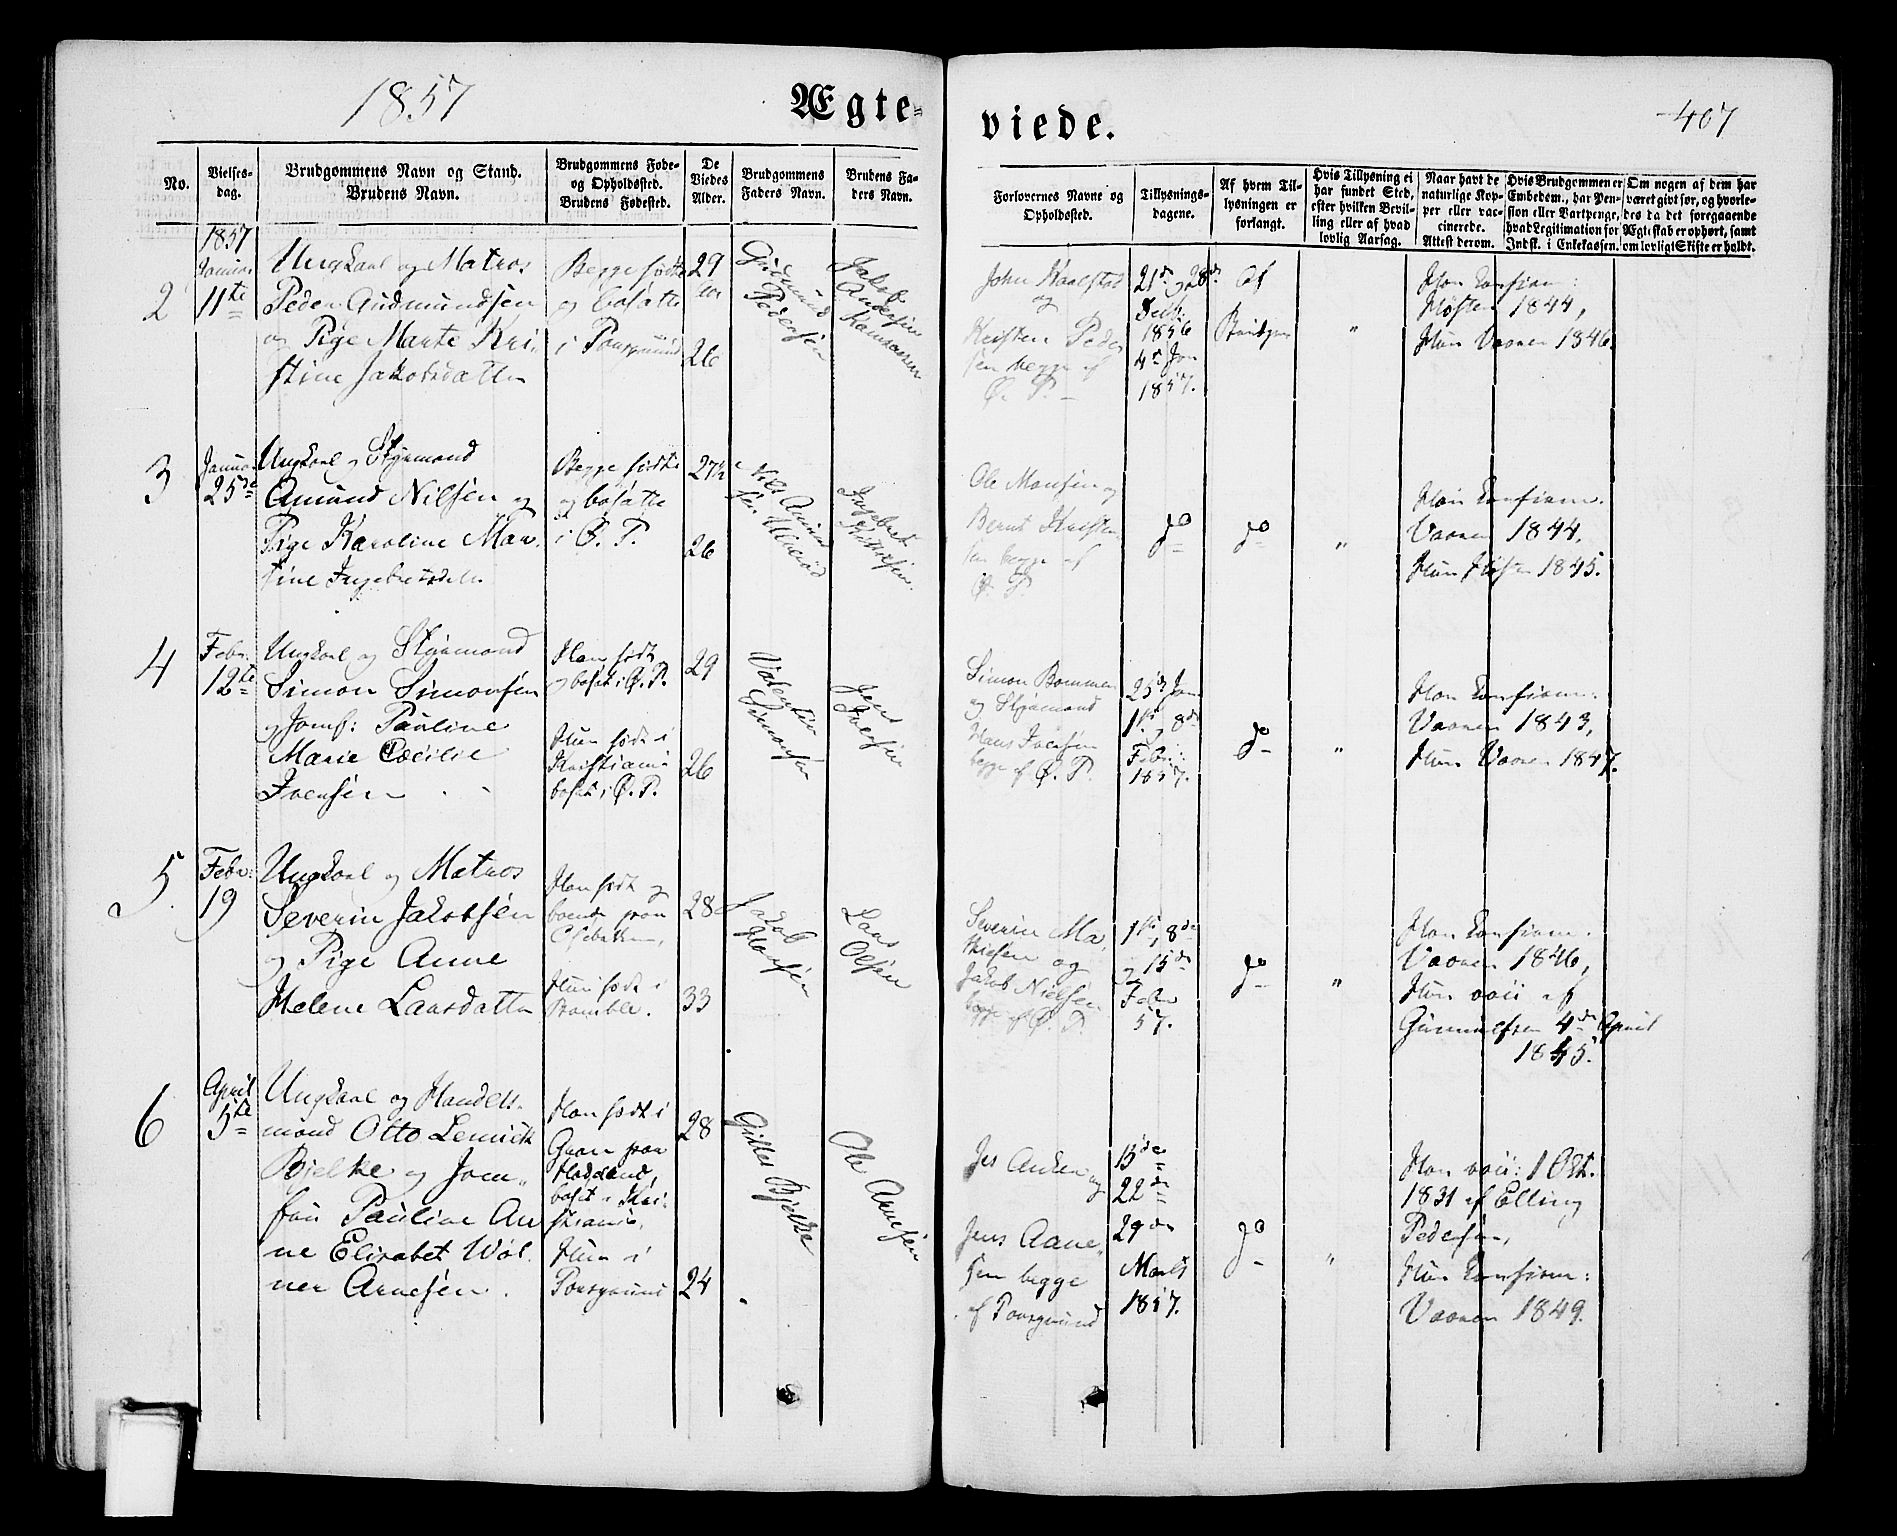 1857
Ægte-
viede.
407
No.
Vielses-
dag.
Brudgommens Navn og Stand.
Brudens Navn.
Brudgommens Føde-
og Opholdssted.
Brudens Fødested.
De
Viedes
Alder.
Brudgommens
Faders Navn.
Brudens Fa-
ders Navn.
Forlovernes Navne og
Opholdssted.
Tillysnings-
dagene.
Af hvem Til-
lysningen er
forlangt.
Hvis Tillysning ei
har fundet Sted,
efter hvilken Bevil-
ling eller af hvad
lovlig Aarsag.
Naar havt de
naturlige Kop-
per eller vac-
cinerede.
Attest derom.
Hvis Brudgommen er
Embedsm., har Pen-
sion eller Vartpenge,
hvad Legitimation for
Indsk. i Enkekassen.
Om nogen af dem har
været givt før, og hvorle-
des da det foregaaende
Ægteskab er ophørt, samt
om lovligt Skifte er holdt.
1857
2
Januar
11te
Ungkarl og Matros
Peder Gudmundsen
og Pige Marte Kri-
stine Jakobsdatter
Begge fødte
og bosatte
i Porsgrund
29
26
Gudmund
Pedersen
Jakob
Andersen
John
og
Kristen Peder
sen begge af
Ø. P.
21de og 28de
1856
4de Jan
1857.
Af
Brudgom
"
Han konfirm:
Høsten 1844,
Hun Vaaren 1846.
3
Januar
25de
Ungkarl og Styrmand
Amund Nilsen og
Pige Karoline Mar-
tine Ingebretsdatter
Begge fødte
og bosatte
i Ø. P.
27½
26
Nils Amund
sen
Ingebret
Ole Monsen og
Bernt Kristen
sen begge af
Ø. P.
do
do
"
Han konfirm.
Vaaren 1844.
Hun Høsten 1845.
4
Febr.
12te
Ungkarl og Styrmand
Simon Simonsen
og Jomf: Pauline
Marie Cæcilie
Ivensen
Han født
og bosat i Ø. P.
Hun født i
Kristiania
bosat i Ø. P.
29
26
Valentin
Simonsen
Jens
Ivensen
Simon Bommen
og Styrmand
Hans Ivensen
begge af Ø. P.
25de Jan
1ste, 8de
Febr:
1857.
do
"
Han konfirm:
Vaaren 1843,
Hun Vaaren 1847.
5
Febr:
19
Ungkarl og Matros
Severin Jakobsen
og Pige Anne
Helene Larsdatter
Han født og
boende paa
Hun født i
Bamble.
28
33
Jakob
Hansen
Lars
Olsen
Severin Ma-
thisen og
Jakob Nielsen
begge af Ø. P.
1ste, 8de
og 15de
Febr
57.
do
"
Han konfirm.
Vaaren 1846,
Hun vacc af
Gunnulfsen 4de April
1845.
6
April
5te
Ungkarl og Handels-
mand Otto Lemvik
Bjelke og Jom-
fru Pauline An
ne Elisabet Wol-
ner Arnesen.
Han født i
Gran paa
Hadeland,
bosat i Kri-
stiania,
Hun i
Porsgrund
28
24
Gilles Bjelke
Ole Arnesen
Jes Anker og
Jens Aane-
sen begge
af Porsgrund
15de
22de
29de
Marts
1857.
do
"
Han vacc: 1 Okt.
1831 af Elling
Pedersen,
Hun konfirm:
Vaaren 1849.